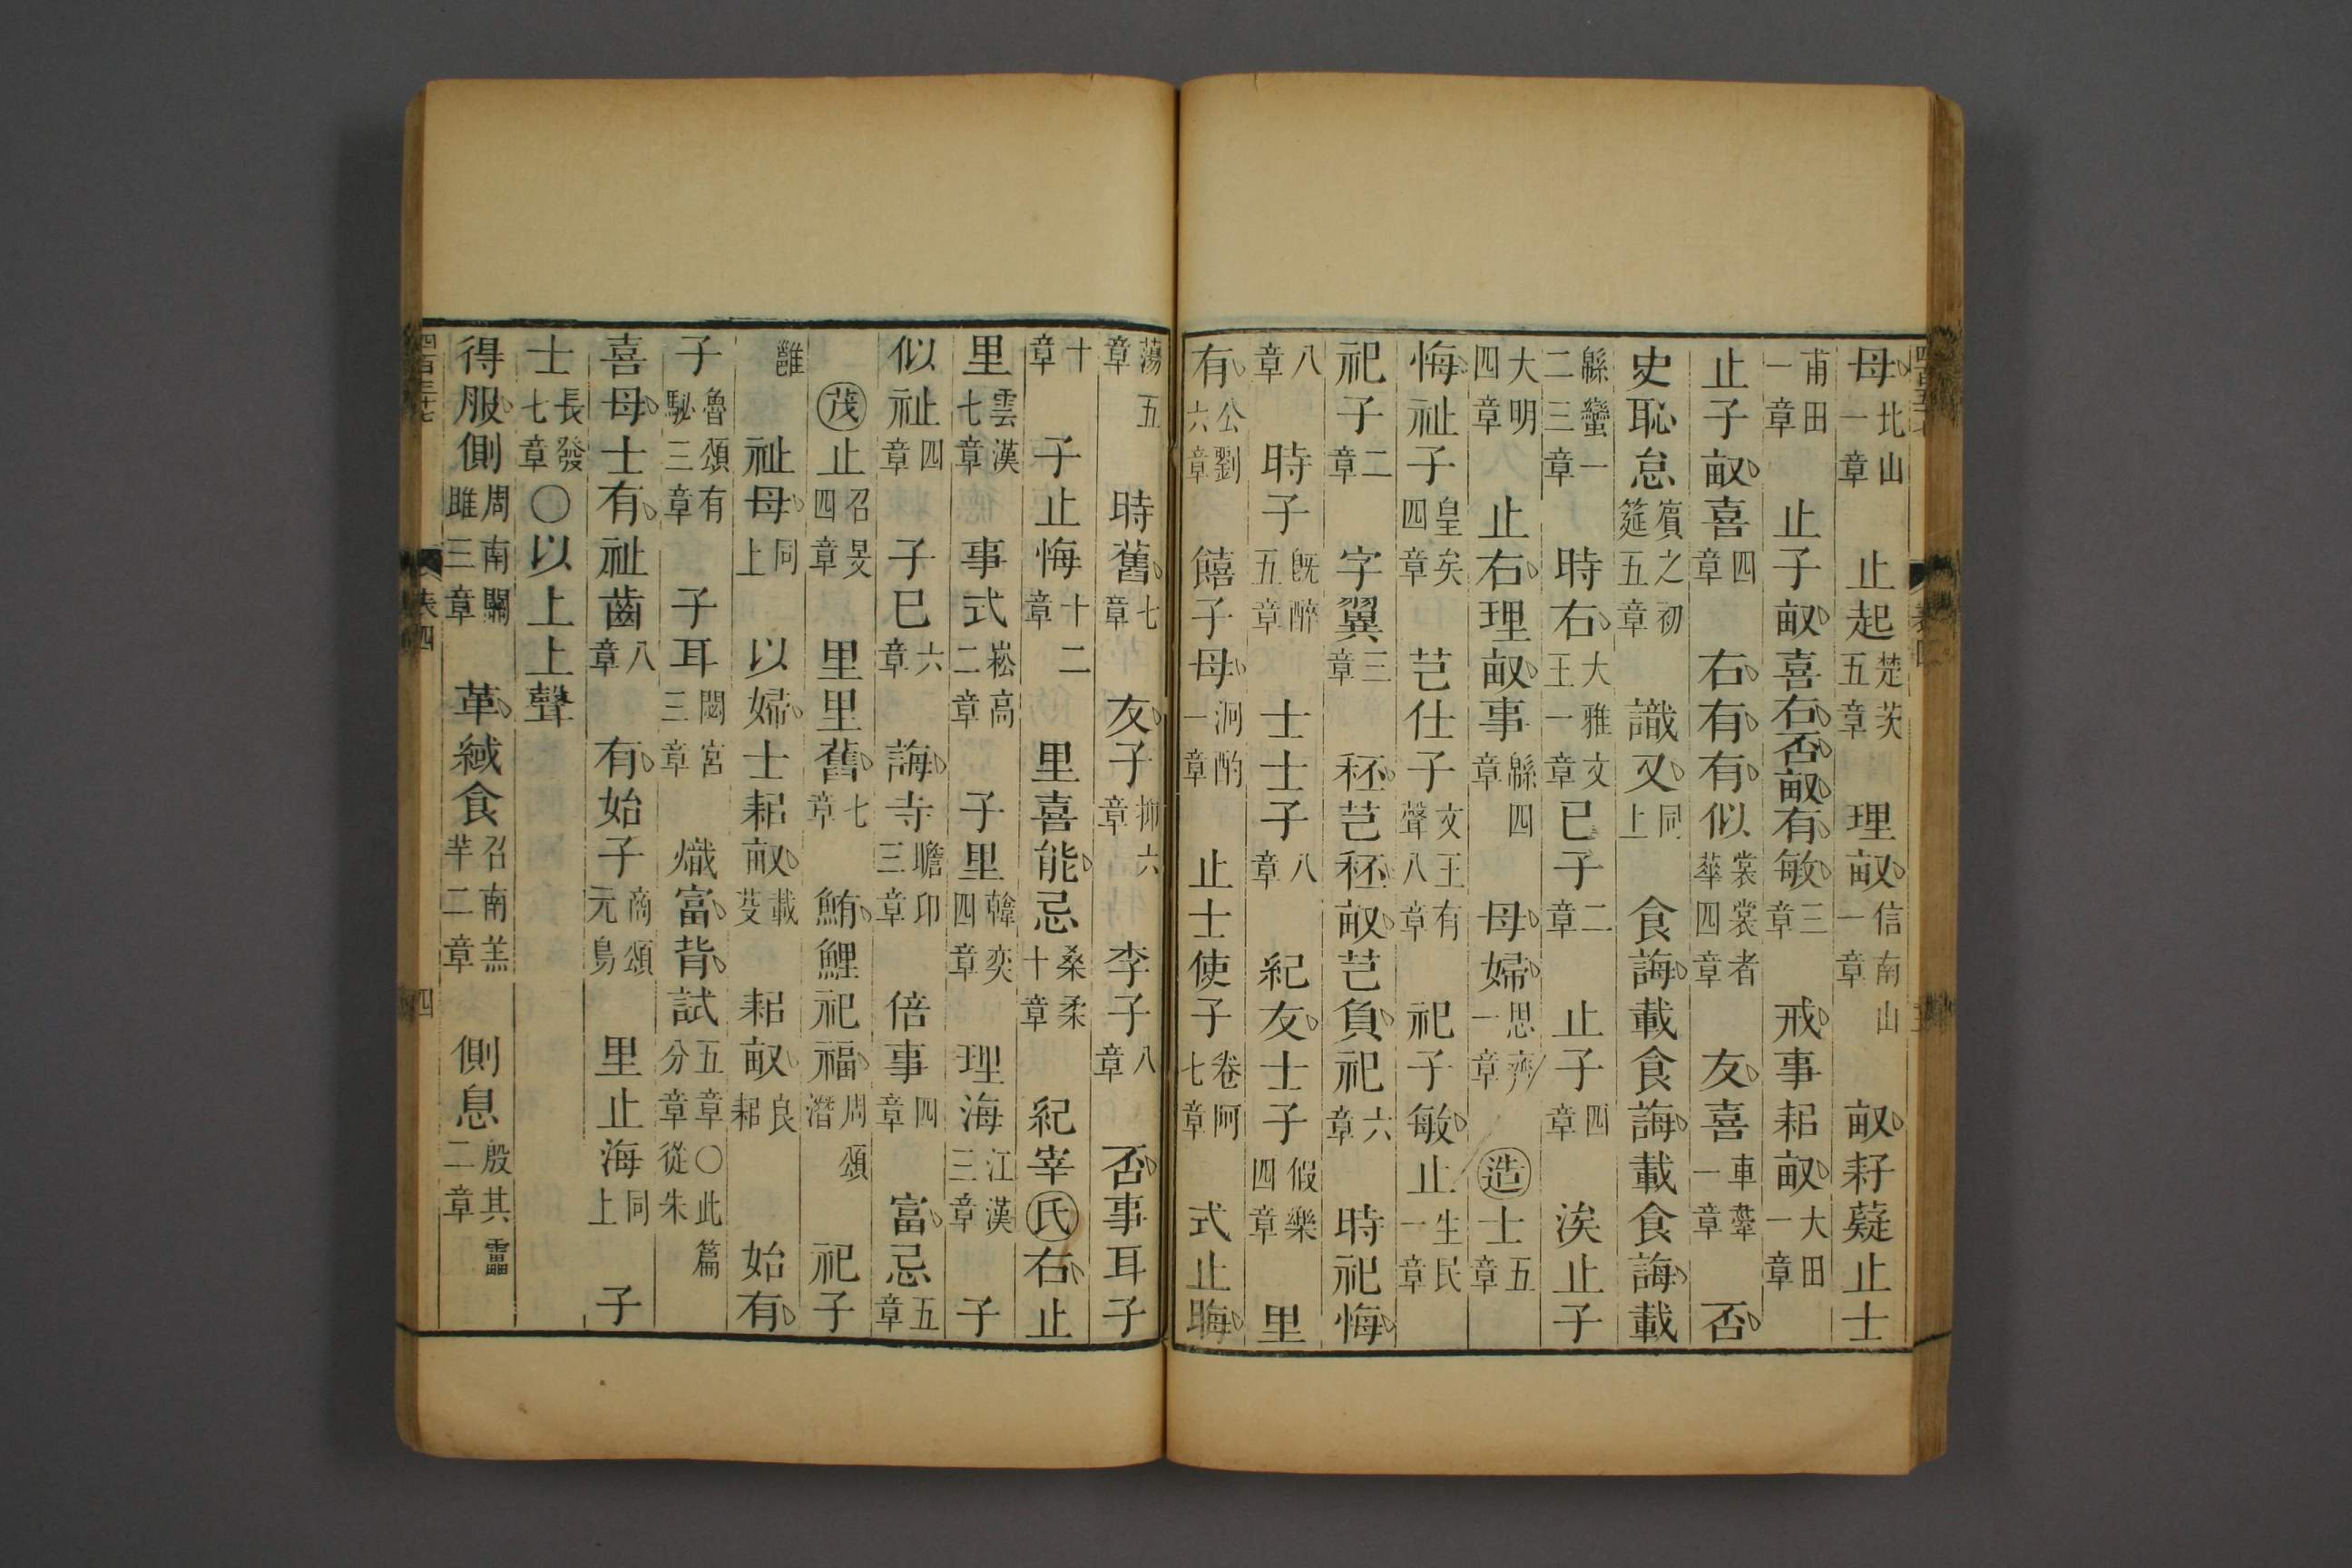 母北山一章　止起楚茨五章　理畝信南山一章　畝耔薿止士
甫田一章　止子畝喜右否畝有敏三章　戒事耜畝大田一章
止子畝喜四章　右有有似裳裳者華四章　友喜車舝一章　否
史恥怠賓之初筵五章　識又同上　食誨載食誨載食誨載
緜蠻一二三章　時右大雅文王一章　已子二章　止子四章　涘止子
大明四章　止右理畝事緜四章　母婦思齊一章　造士五章
悔祉子皇矣四章　芑仕子文王有聲八章　祀子敏止生民一章
祀子二章　字翼三章　秠芑秠畝芑負祀六章　時祀悔
八章　時子既醉五章　士士子八章　紀友士子假樂四章　里
有公劉六章　饎子母泂酌一章　止士使子卷阿七章　式止晦
蕩五章　時舊七章　友子抑六章　李子八章　否事耳子
十章　子止悔十二章　里喜能忌桑柔十章　紀宰氏右止
里雲漢七章　事式崧高二章　子里韓奕四章　理海江漢三章　子
似祉四章　子已六章　誨寺瞻卬三章　倍事四章　富忌五章
茂止召旻四章　里里舊七章　鮪鯉祀福周頌潛　祀子
雝　祉母同上　以婦士耜畝載芟　耜畝良耜　始有
子魯頌有駜三章　子耳閟宮三章　熾富背試五章○此篇分章從朱
喜母士有祉齒八章　有始子商頌元鳥　里止海同上　子
士長發七章○以上上聲
得服側周南關雎三章　革緎食召南羔羊二章　側息殷其靁二章
表四
四